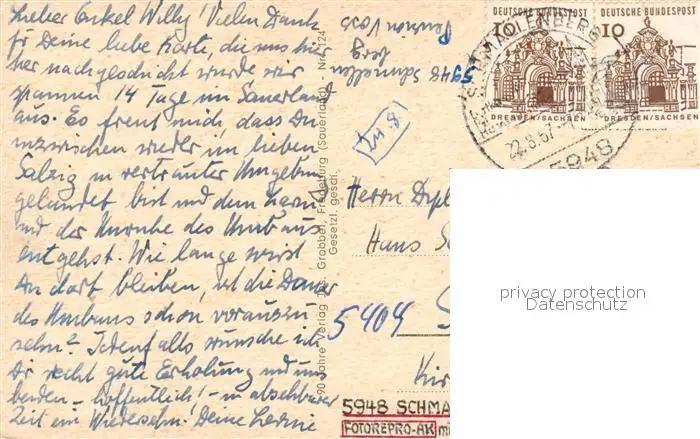 Lieber Onkel Willy! Vielen Dank
für Deine liebe Karte, die uns hier
her nachgeschickt wurde wir
spannen 14 Tage im Sauerland
aus. Es freut mich, dass Du
inzwischen wieder im lieben
Salzig in vertrauter Umgebung
gelandet bist und dem Lärm
und der Unruhe des Umbaus
entgehst. Wie lange wirst
Du dort bleiben, ist die Dauer
des Umbaus schon vorauszu
sehen? Jedenfalls wünsche ich
Dir recht gute Erholung und uns
beiden - hoffentlich! - in absehbarer
Zeit ein Wiedersehn. Deine
5948 Schmallen
berg
Pension Voss
90 Jahre Verlag Jos. Grobbel, Fredeburg (Sauerland)
Gesetzl. gesch.
DEUTSCHE BUNDESPOST
10
DRESDEN/SACHSEN
DEUTSCHE BUNDESPOST
10
DRESDEN/SACHSEN
SCHMALLENBERG
22.8.67
5948
Herrn Dipl
Hans S
5404 S
Kir
privacy protection
Datenschutz
5948 SCHMA
FOTOREPRO-AK mi